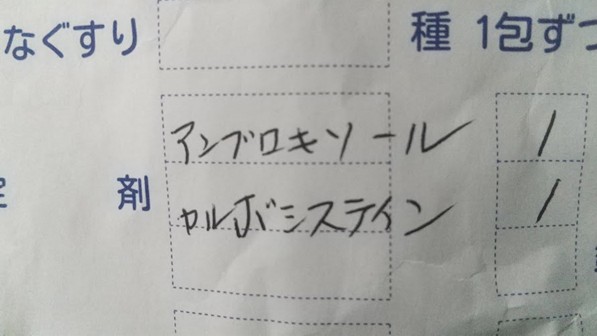 なぐすり 種 1包ずつ
アンブロキソール 1
錠 剤 カルボシステイン 1